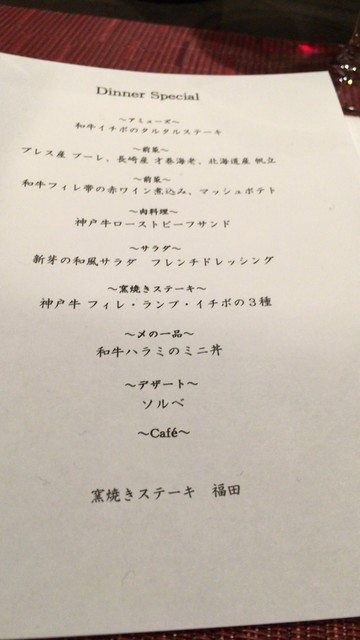 Dinner Special
～アミューズ～
和牛イチボのタルタルステーキ
～前菜～
ブレス産 プーレ、長崎産 才巻海老、北海道産 帆立
～前菜～
和牛フィレ帯の赤ワイン煮込み、マッシュポテト
～肉料理～
神戸牛ローストビーフサンド
～サラダ～
新芽の和風サラダ　フレンチドレッシング
～窯焼きステーキ～
神戸牛 フィレ・ランプ・イチボの３種
～〆の一品～
和牛ハラミのミニ丼
～デザート～
ソルベ
～Café～
窯焼きステーキ　福田